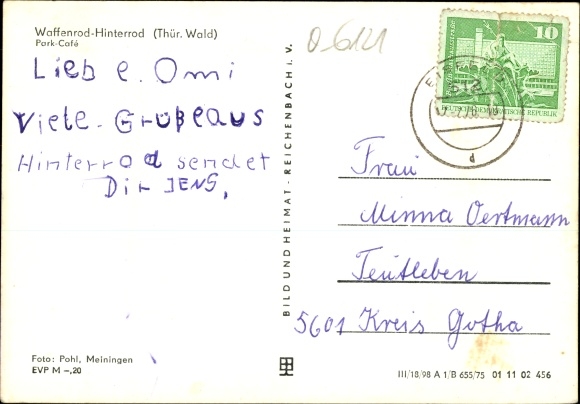 Waffenrod-Hinterrod (Thür. Wald)
Park-Café
Lieb e. Omi
Viele. Grüße aus
Hinterrod sendet
Dir JENS,
Foto: Pohl, Meiningen
EVP M –,20
BILD UND HEIMAT · REICHENBACH i. V.
06121
10
DEUTSCHE DEMOKRATISCHE REPUBLIK
612
d
Frau
Minna Oertmann
Teutleben
5601 Kreis Gotha
III/18/98 A 1/B 655/75 01 11 02 456